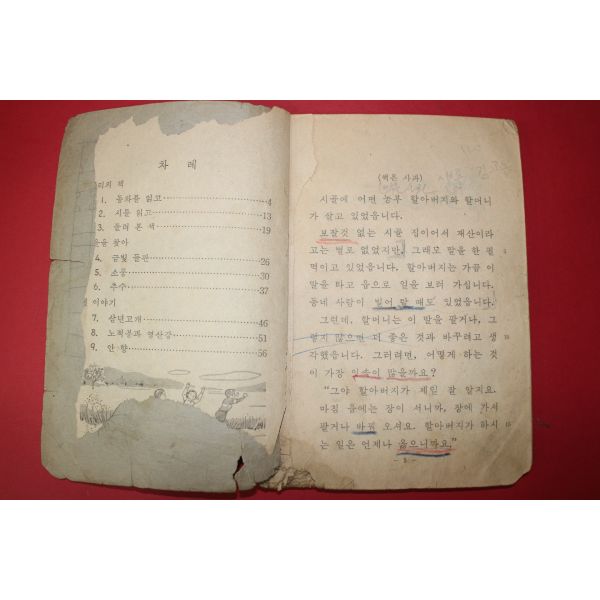 차 례
리의 책
1. 동화를 읽고 4
2. 시를 읽고 13
3. 돌려 본 책 19
을 찾아
4. 금빛 들판 26
5. 소풍 30
6. 추수 37
이야기
7. 삼년고개 46
8. 노적봉과 영산강 51
9. 안 향 56
(썩은 사과)
시골에 어떤 농부 할아버지와 할머니
가 살고 있었읍니다.
보잘것 없는 시골 집이어서 재산이라
고는 별로 없었지만, 그래도 말을 한 필
먹이고 있었읍니다. 할아버지는 가끔 이
말을 타고 읍으로 일을 보러 가십니다.
동네 사람이 빌어 탈 때도 있었읍니다.
그런데, 할머니는 이 말을 팔거나, 그
렇지 않으면 더 좋은 것과 바꾸려고 생
각했읍니다. 그러려면, 어떻게 하는 것
이 가장 이속이 많을까요?
"그야 할아버지가 제일 잘 알지요.
마침 읍에는 장이 서니까, 장에 가서
팔거나 바꿔 오셔요. 할아버지가 하시
는 일은 언제나 옳으니까요."
5
10
15